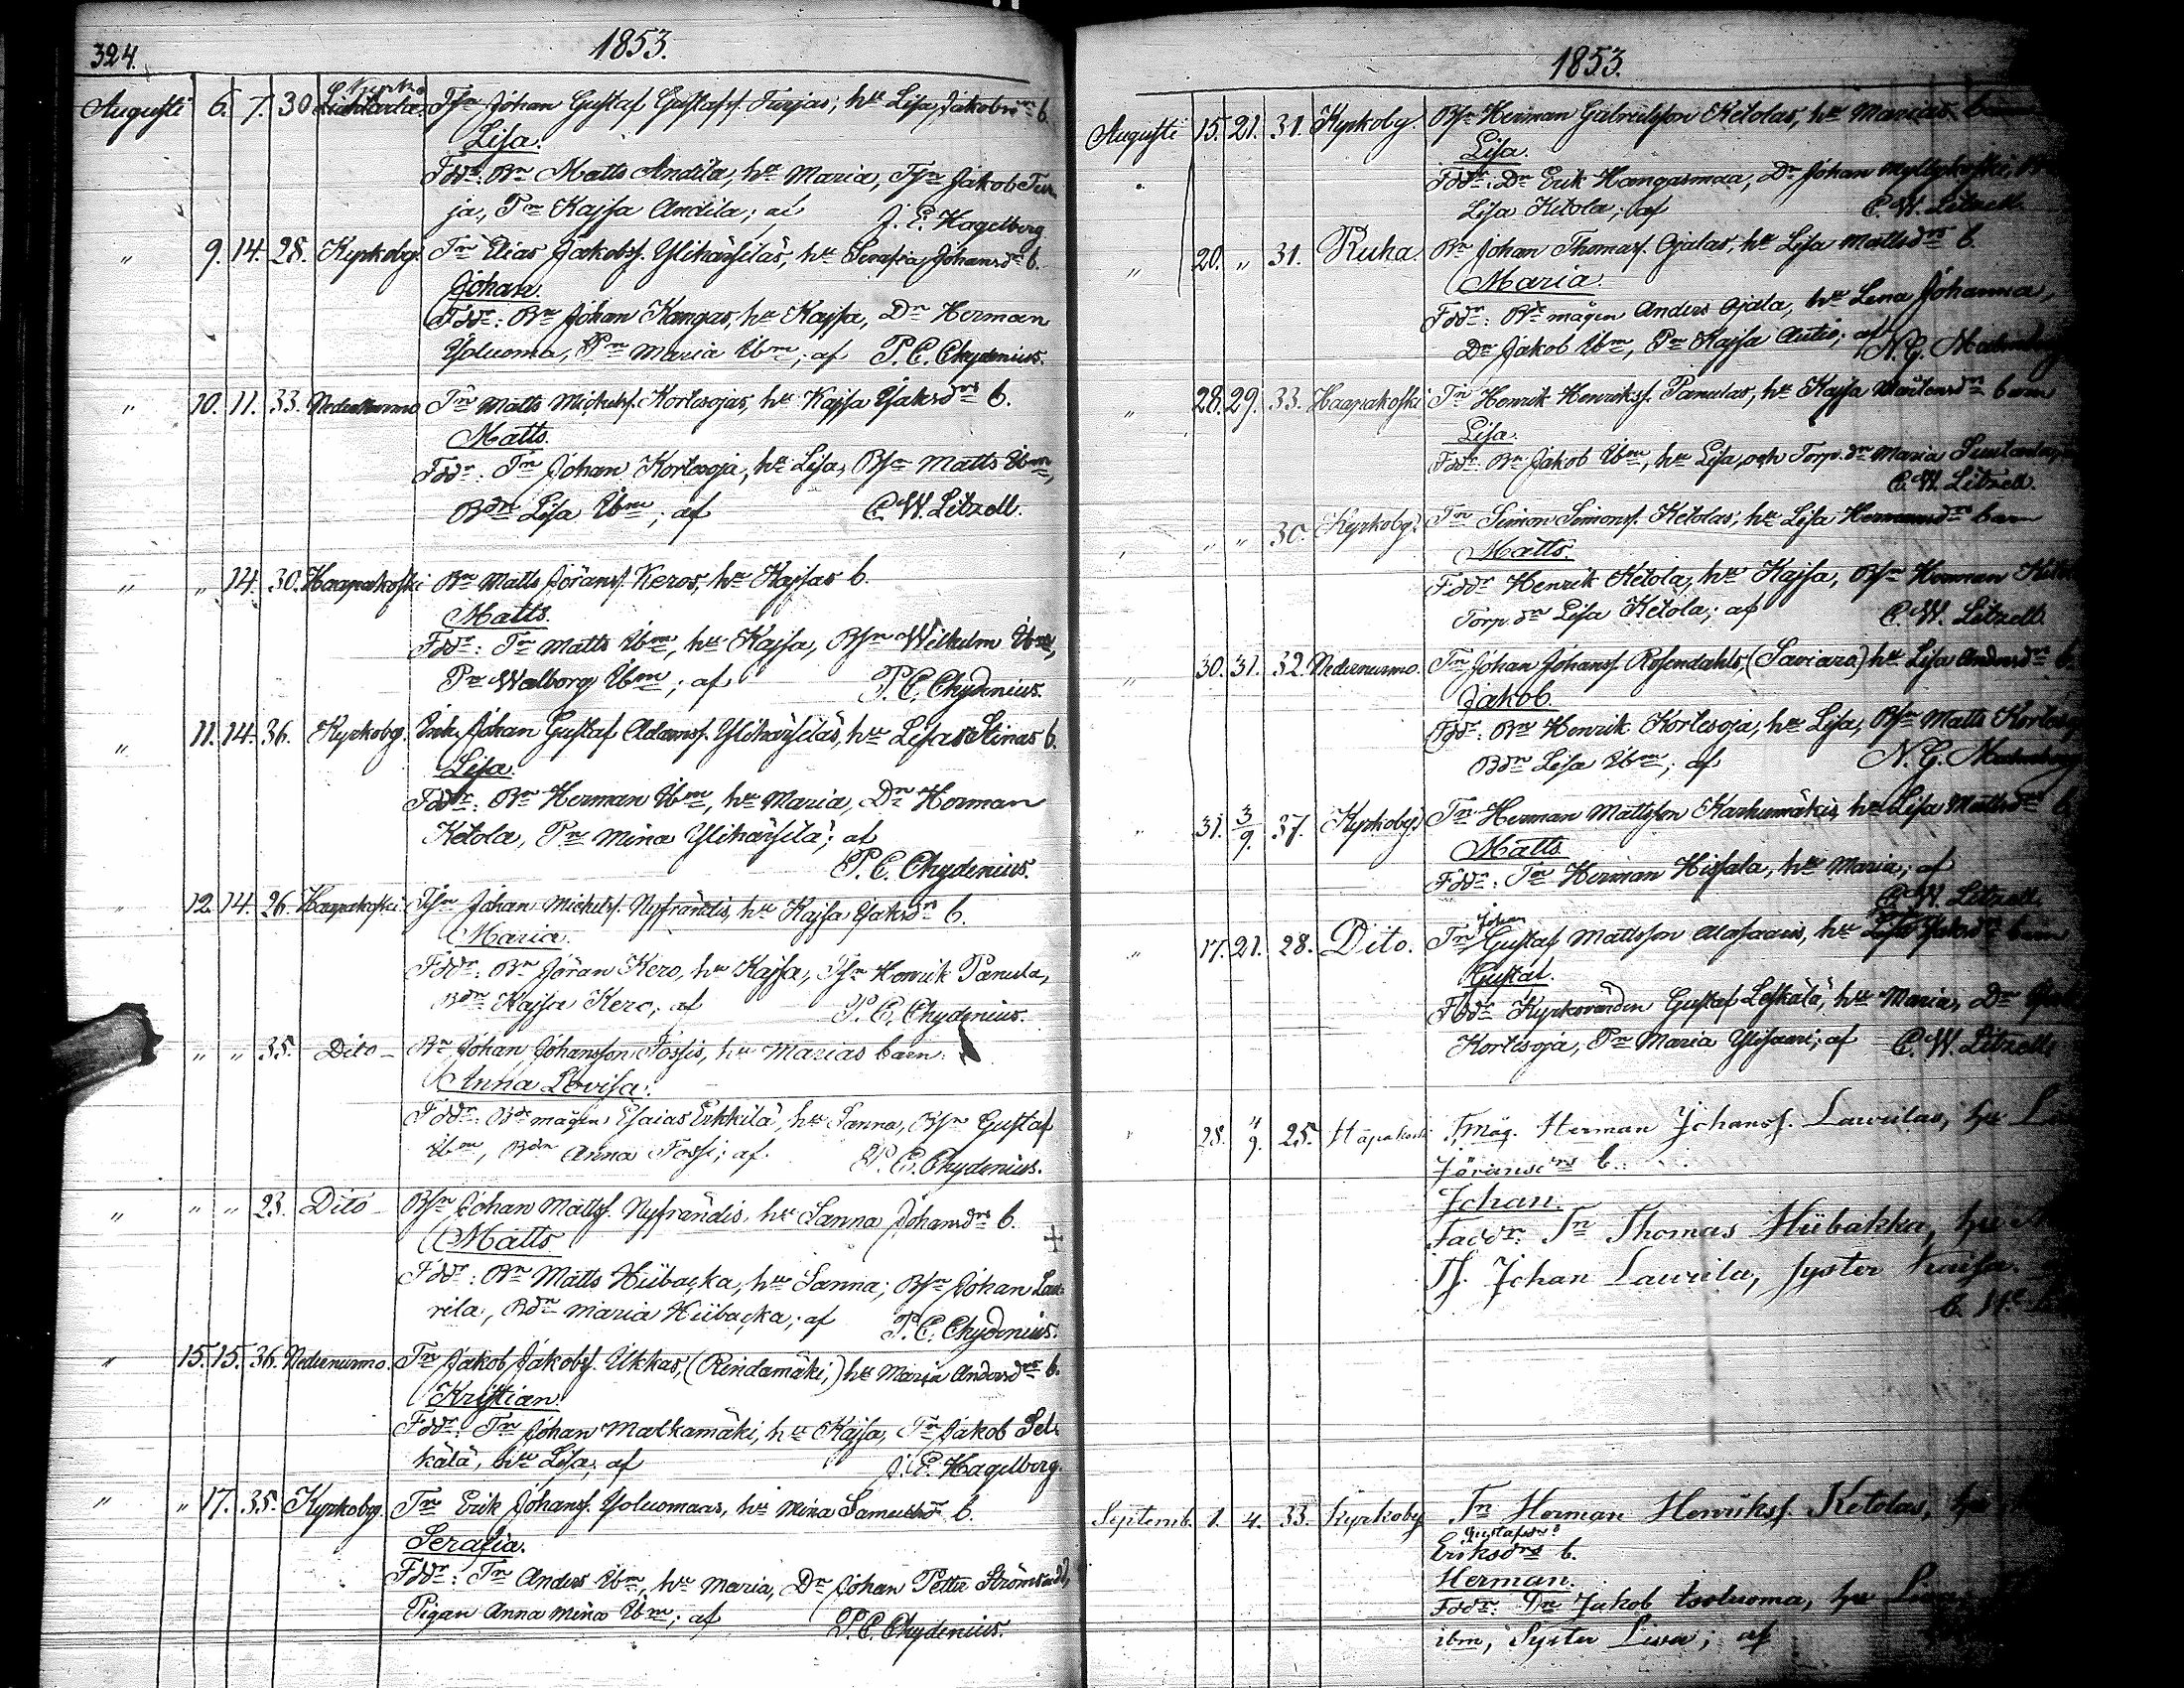 324.
1853.
Augusti 6. 7. 30 Tsn Johan Gustaf Gustafss. Turjas, hu Lisa Jakobsdrs b.
Lisa.
Fddr: Bn Matts Andila, hu Maria, Tsn Jakob Tur
ja, Pn Kajsa Andila; af J. E. Hagelberg
" 9. 14. 28. Kyrkoby Tn Elias Jakobss. Ylihärsiläs, hu Serafia Johansdrs b.
Johan.
Fddr: Bn Johan Kangas, hu Kajsa, Dn Herman
Yoluoma, Pn Maria Ibm; af P. E. Chydenius.
" 10. 11. 33. Nedernurmo Tn Matts Michelss. Kortesojas, hu Kajsa Isaksdrs b.
Matts.
Fddr: Tn Johan Kortesoja, hu Lisa, Bsn Matts Ibm,
Bdn Lisa Ibm; af C. W. Litzell.
" " 14. 30. Haapakoski Bn Matts Jöranss. Keros, hu Kajsas b.
Matts.
Fddr: Tn Matts Ibm, hu Kajsa, Bsn Wilhelm Ibm,
Pn Walborg Ibm; af P. E. Chydenius.
" 11. 14. 36. Kyrkoby. Inh. Johan Gustaf Adamss. Ylihärsiläs, hu Lisas Stinas b.
Lisa.
Fddr: Bn Herman Ibm, hu Maria, Dn Herman
Ketola, Pn Mina Ylihärsilä; af
P. E. Chydenius.
" 12. 14. 26. Haapakoski Tsn Johan Michelss. Nyfrändis, hu Kajsa Isaksdrs b.
Maria.
Fddr: Bn Jöran Kero, hu Kajsa, Tsn Henrik Panula,
Bdn Kajsa Kero; af P. E. Chydenius.
" " 35. Dito Bn Johan Johansson Fossis, hu Marias barn:
Anna Lovisa.
Fddr: Bde mågen Esaias Erkkilä, hu Sanna, Bsn Gustaf
Ibm, Bdn Anna Fossi; af P. E. Chydenius.
" " " 23. Dito Bsn Johan Mattss. Nyfrändis, hu Sanna Johansdrs b.
Matts
Fddr: Bn Matts Hübacka, hu Sanna; Bsn Johan Lau-
rila, Bdn Maria Hübacka; af P. E. Chydenius.
" 15. 15. 36. Nedernurmo. Tn Jakob Jakobss. Ukkas, (Rindamäki,) hu Maria Andersdrs b.
Kristian
Fddr: Tn Johan Malkamäki, hu Kajsa, Tn Jakob Les
kälä, hu Lisa; af J. E. Hagelberg.
" " 17. 35. Kyrkoby. Tn Erik Johanss. Yoluomaas, hu Mina Samuelsdr b.
Serafia.
Fddr: Tn Anders Ibm, hu Maria, Dn Johan Petter
Pigan Anna Mina Ibm; af P. E. Chydenius.
1853.
Augusti 15. 21. 31. Kyrkoby. Bsn Herman Gabrielsson Ketolas, hu Marias barn
Lisa.
Fddr: Dn Erik Hangasmaa, Dn Johan Myllykoski,
Lisa Ketola; af C. W. Litzell.
" 20. " 31. Ruha. Bn Johan Thomass. Ojalas, hu Lisa Mattsdrs b.
Maria.
Fddr: Bde mågen Anders Ojala, hu Lena Johanna,
Dn Jakob Ibm, Pn Kajsa Autio; af N. G. Malmberg
" 28. 29. 33. Haapakoski Tn Henrik Henrikss. Panulas, hu Kajsa Mårtensdrs barn
Lisa.
Fddr: Bn Jakob Ibm, hu Lisa, och Torp. dn Maria
C. W. Litzell.
" " " 30. Kyrkoby. Tn Simon Simonss. Ketolas, hu Lisa Hermansdrs barn
Matts.
Fddr Henrik Ketola, hu Kajsa, Bsn Herman
Torp. dn Lisa Ketola; af C. W. Litzell
" 30. 31. 32. Nedernurmo. Tn Johan Johanss. Rosendahls, (Saviara) hu Lisa Andersdrs b.
Jakob
Fddr: Bn Henrik Kortesoja, hu Lisa, Bsn Matts
Bdn Lisa Ibm; af N. G. Malmberg
" 31. 3/9. 37. Kyrkoby. Tn Herman Mattsson Karhumäkis, hu Lisa Mattsdrs b.
Matts
Fddr: Tn Herman Hissala, hu Maria; af
C. W. Litzell
" 17. 21. 28. Dito. Tn Johan Gustaf Mattsson Alasaaris, hu Lisa Jaksdrs barn
Gustaf.
Fddr Kyrkovärden Gustaf Leskälä, hu Maria, Dn
Kortesoja, Pn Maria Ylisaari; af C. W. Litzell
" 28. 4/9. 25. Haapakoski Tmåg. Herman Johanss. Laurilas, hu
Jöransdrs b.
Johan.
Faddr: Tn Thomas Hübakka, hu
Ts. Johan Laurila, syster Kaisa.
Septemb. 1. 4. 33. Kyrkoby Tn Herman Henrikss. Ketolas, hu
Gustafsdrs
Eriksdrs b.
Herman.
Fddr: Tn Jakob hu
ibm, Syster Lisa; af